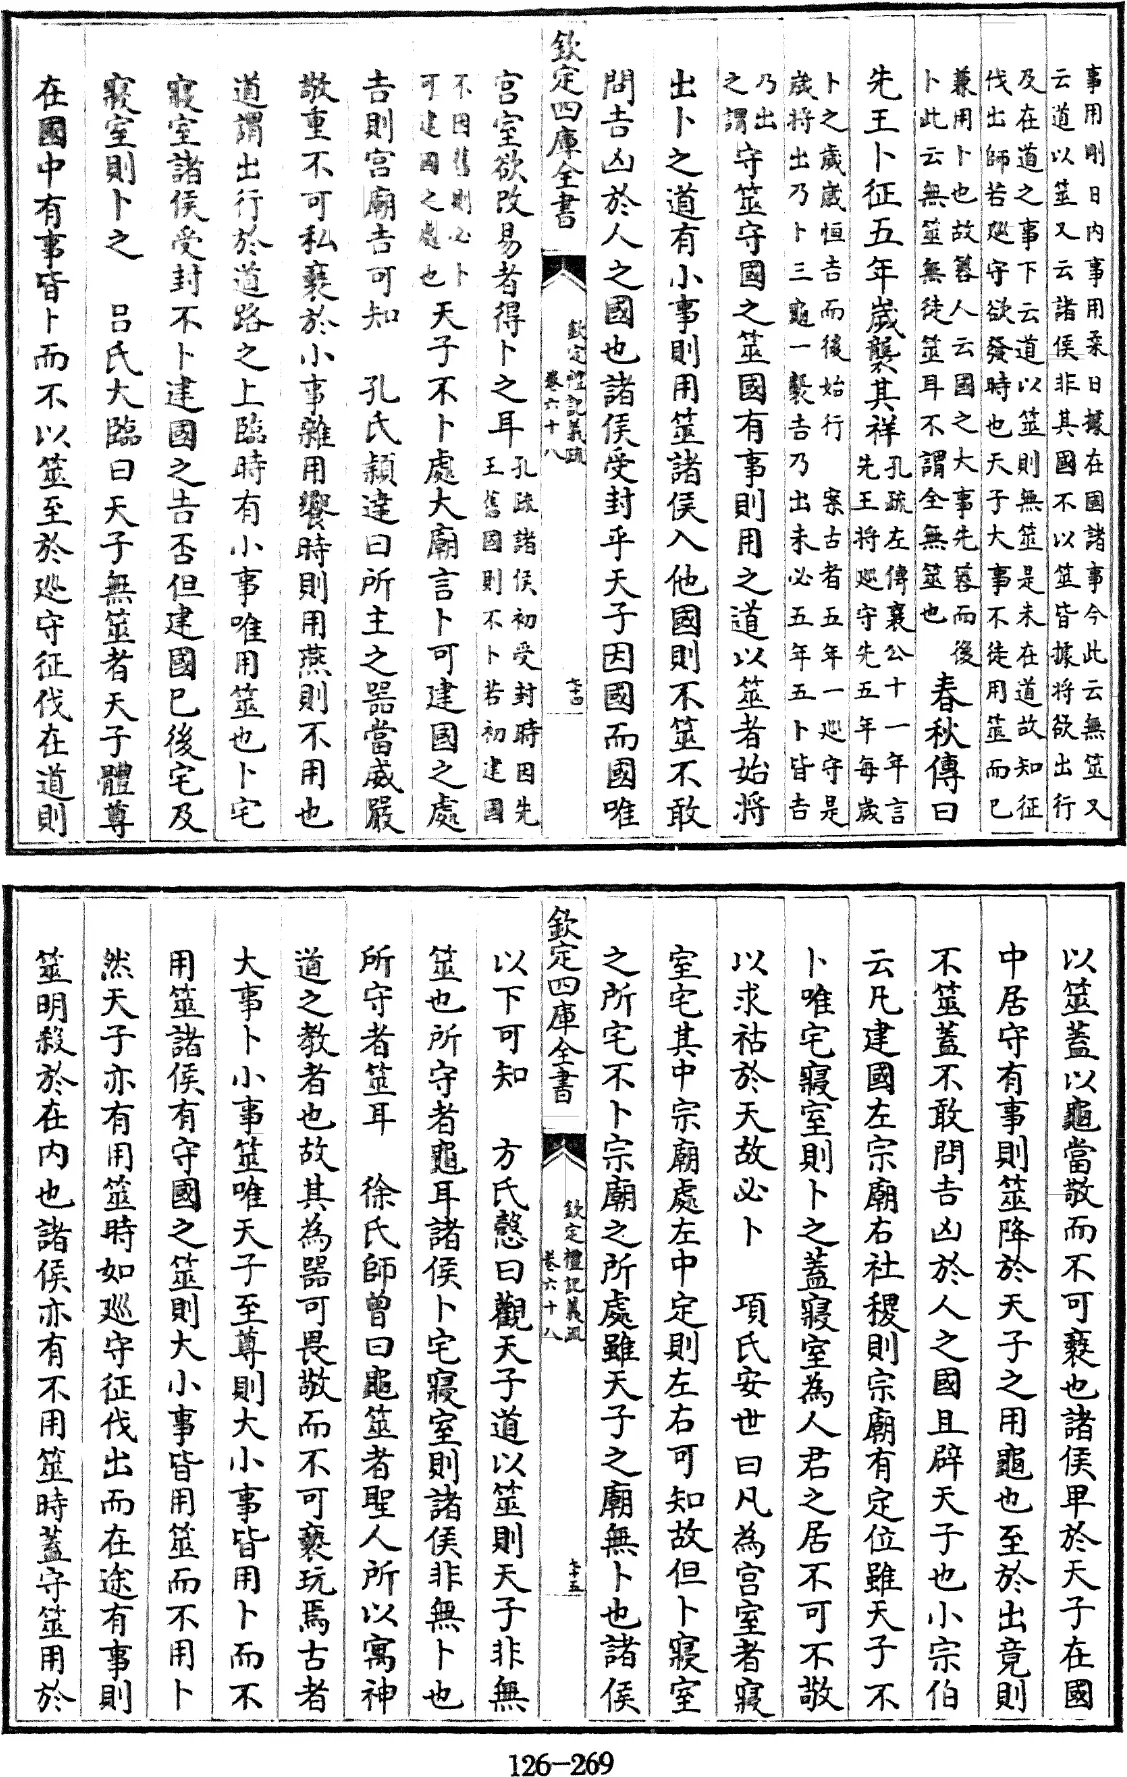 事用剛日内事用柔日據在國諸事今此云無筮又
云道以筮又云諸侯非其國不以筮皆據將欲出行
及在道之事下云道以筮則無筮是未在道故知征
伐出師若廵守欲發時也天子大事不徒用筮而已
兼用卜也故簭人云國之大事先簭而後
卜此云無筮無徒筮耳不謂全無筮也
春秋傳曰
先王卜征五年歲襲其祥
孔疏左傳襄公十一年言
先王將廵守先五年每歲
卜之歲歲恒吉而後始行 案古者五年一廵守是
歲將出乃卜三龜一襲吉乃出未必五年五卜皆吉
乃出
之謂
守筮守國之筮國有事則用之道以筮者始將
出卜之道有小事則用筮諸侯入他國則不筮不敢
問吉凶於人之國也諸侯受封乎天子因國而國唯
欽定四庫全書
欽定禮記義疏
卷六十八
七十四
宫室欲改易者得卜之耳
孔疏諸侯初受封時因先
王舊國則不卜若初建國
不因舊則必卜
可建國之處也
天子不卜處大廟言卜可建國之處
吉則宫廟吉可知 孔氏穎達曰所主之器當威嚴
敬重不可私褻於小事雜用饗時則用燕則不用也
道謂出行於道路之上臨時有小事唯用筮也卜宅
寢室諸侯受封不卜建國之吉否但建國已後宅及
寢室則卜之 吕氏大臨曰天子無筮者天子體尊
在國中有事皆卜而不以筮至於廵守征伐在道則
以筮蓋以龜當敬而不可褻也諸侯卑於天子在國
中居守有事則筮降於天子之用龜也至於出竟則
不筮蓋不敢問吉凶於人之國且辟天子也小宗伯
云凡建國左宗廟右社稷則宗廟有定位雖天子不
卜唯宅寢室則卜之蓋寢室為人君之居不可不敬
以求祜於天故必卜 項氏安世曰凡為宫室者寢
室宅其中宗廟處左中定則左右可知故但卜寢室
之所宅不卜宗廟之所處雖天子之廟無卜也諸侯
欽定四庫全書
欽定禮記義疏
卷六十八
七十五
以下可知 方氏慤曰觀天子道以筮則天子非無
筮也所守者龜耳諸侯卜宅寢室則諸侯非無卜也
所守者筮耳 徐氏師曾曰龜筮者聖人所以寓神
道之教者也故其為器可畏敬而不可褻玩焉古者
大事卜小事筮唯天子至尊則大小事皆用卜而不
用筮諸侯有守國之筮則大小事皆用筮而不用卜
然天子亦有用筮時如廵守征伐出而在途有事則
筮明殺於在内也諸侯亦有不用筮時蓋守筮用於
126-269